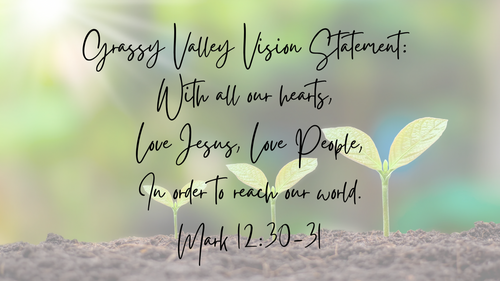 Grassy Valley Vision Statement:
With all our hearts,
Love Jesus, Love People,
In order to reach our world.
Mark 12:30-31